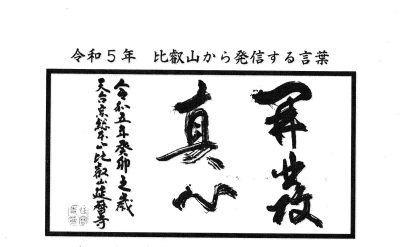 令和５年　比叡山から発信する言葉
開發
真心
令和五年癸卯之歳
天台宗総本山比叡山延暦寺